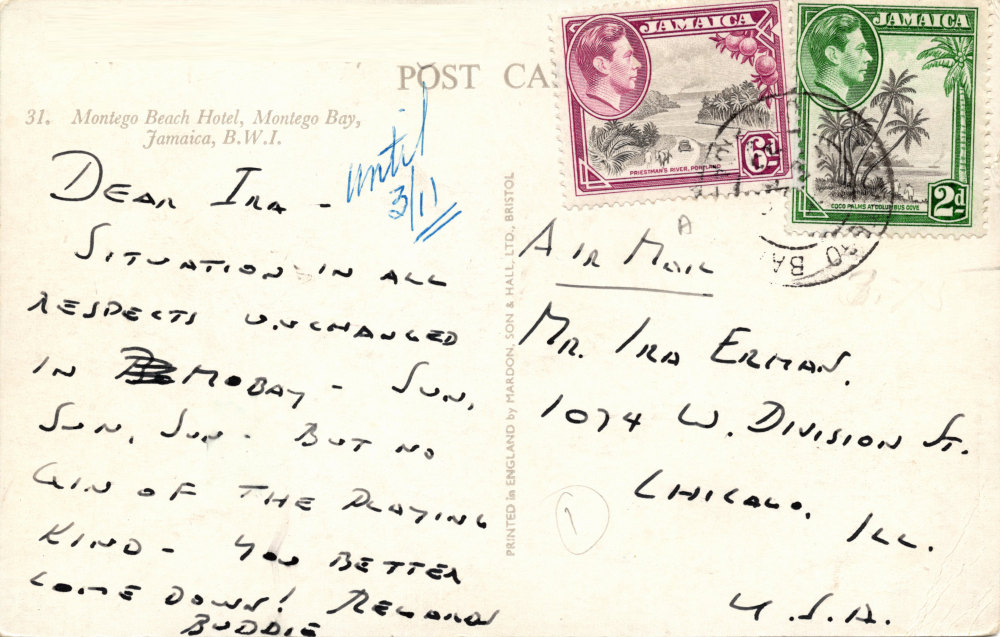 POST CA
31. Montego Beach Hotel, Montego Bay,
Jamaica, B.W.I.
until
3/11
DEAR IRA -
SITUATION IN ALL
RESPECTS UNCHANGED
IN MOBAY - SUN,
SUN, SUN - BUT NO
GIN OF THE PLAYING
KIND - YOU BETTER
COME DOWN! REGARDS
BUDDIE
PRINTED in ENGLAND by MARDON, SON & HALL, LTD., BRISTOL
JAMAICA
6d
PRIESTMAN'S RIVER, PORTLAND
JAMAICA
COCO PALMS AT COLUMBUS COVE
2d
BA
A
AIR MAIL
MR. IRA ERMAN.
1074 W. DIVISION ST.
CHICAGO,
ILL.
U.S.A.